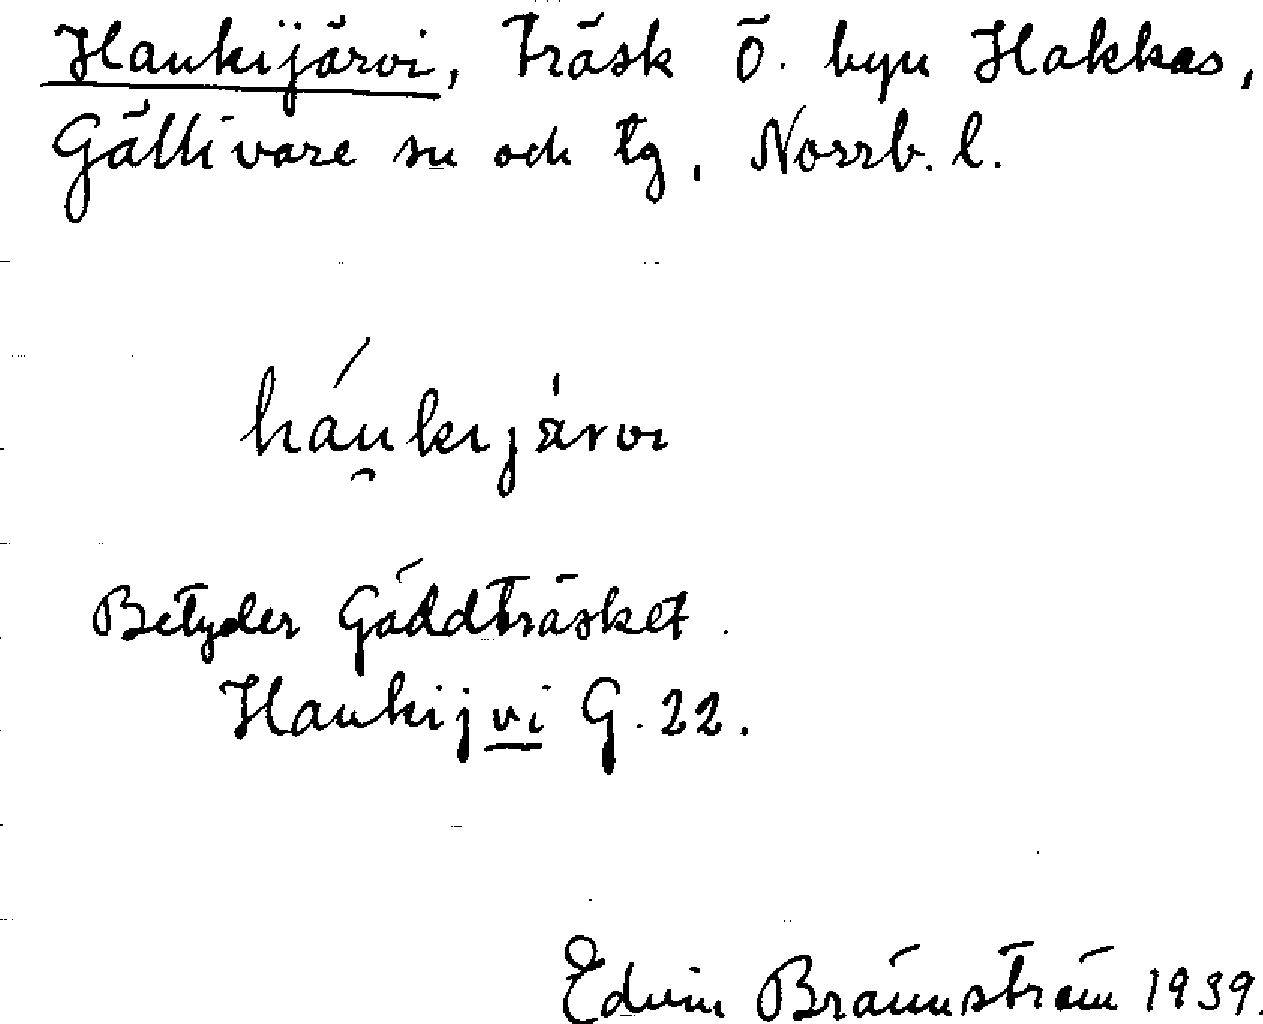 Haukijärvi, träsk ö. byn Hakkas,
Gällivare sn och tg, Norrb. l.
háu̯kijärvi
Betyder Gäddträsket.
Haukijvi G. 22.
Edvin Brännström 1939.